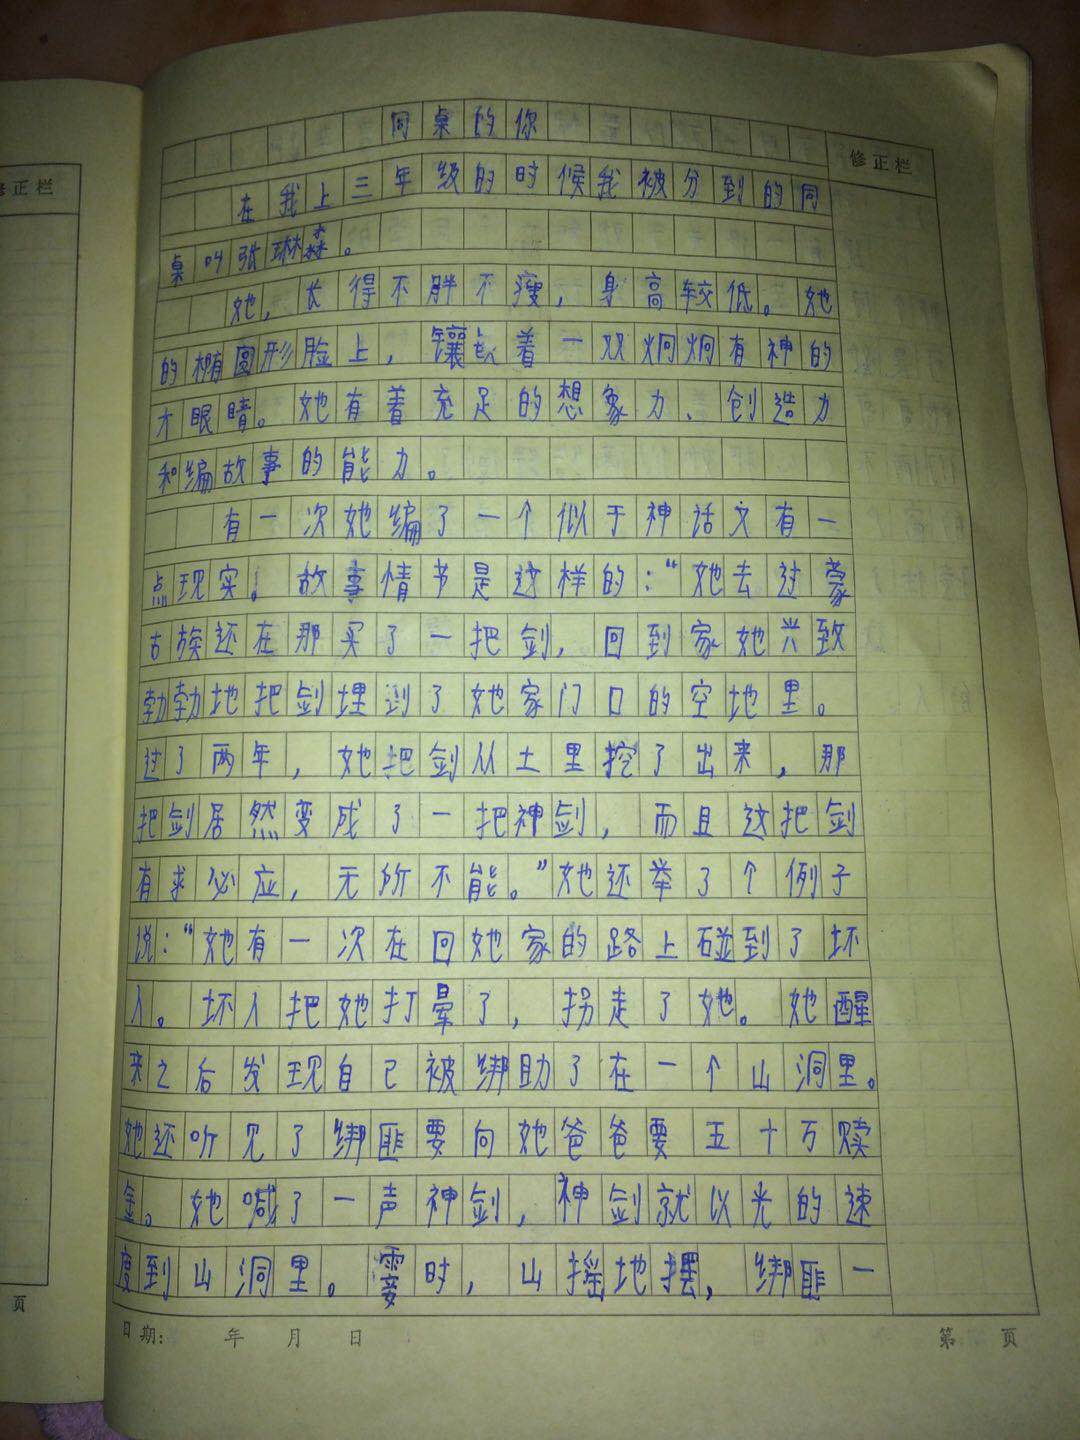 同桌的你
修正栏
在我上三年级的时候我被分到的同
桌叫张琳淼。
她，长得不胖不瘦，身高较低。她
的椭圆形脸上，镶着一双炯炯有神的
才眼睛。她有着充足的想象力、创造力
和编故事的能力。
有一次她编了一个似于神话又有一
点现实！故事情节是这样的：“她去过蒙
古族还在那买了一把剑，回到家她兴致
勃勃地把剑埋到了她家门口的空地里。
过了两年，她把剑从土里挖了出来，那
把剑居然变成了一把神剑，而且这把剑
有求必应，无所不能。”她还举了个例子
说：“她有一次在回她家的路上碰到了坏
人。坏人把她打晕了，拐走了她。她醒
来之后发现自己被绑助了在一个山洞里。
她还听见了绑匪要向她爸爸要五十万赎
金。她喊了一声神剑，神剑就以光的速
度到山洞里。霎时，山摇地摆，绑匪一
日期： 年 月 日
第 页
修正栏
页